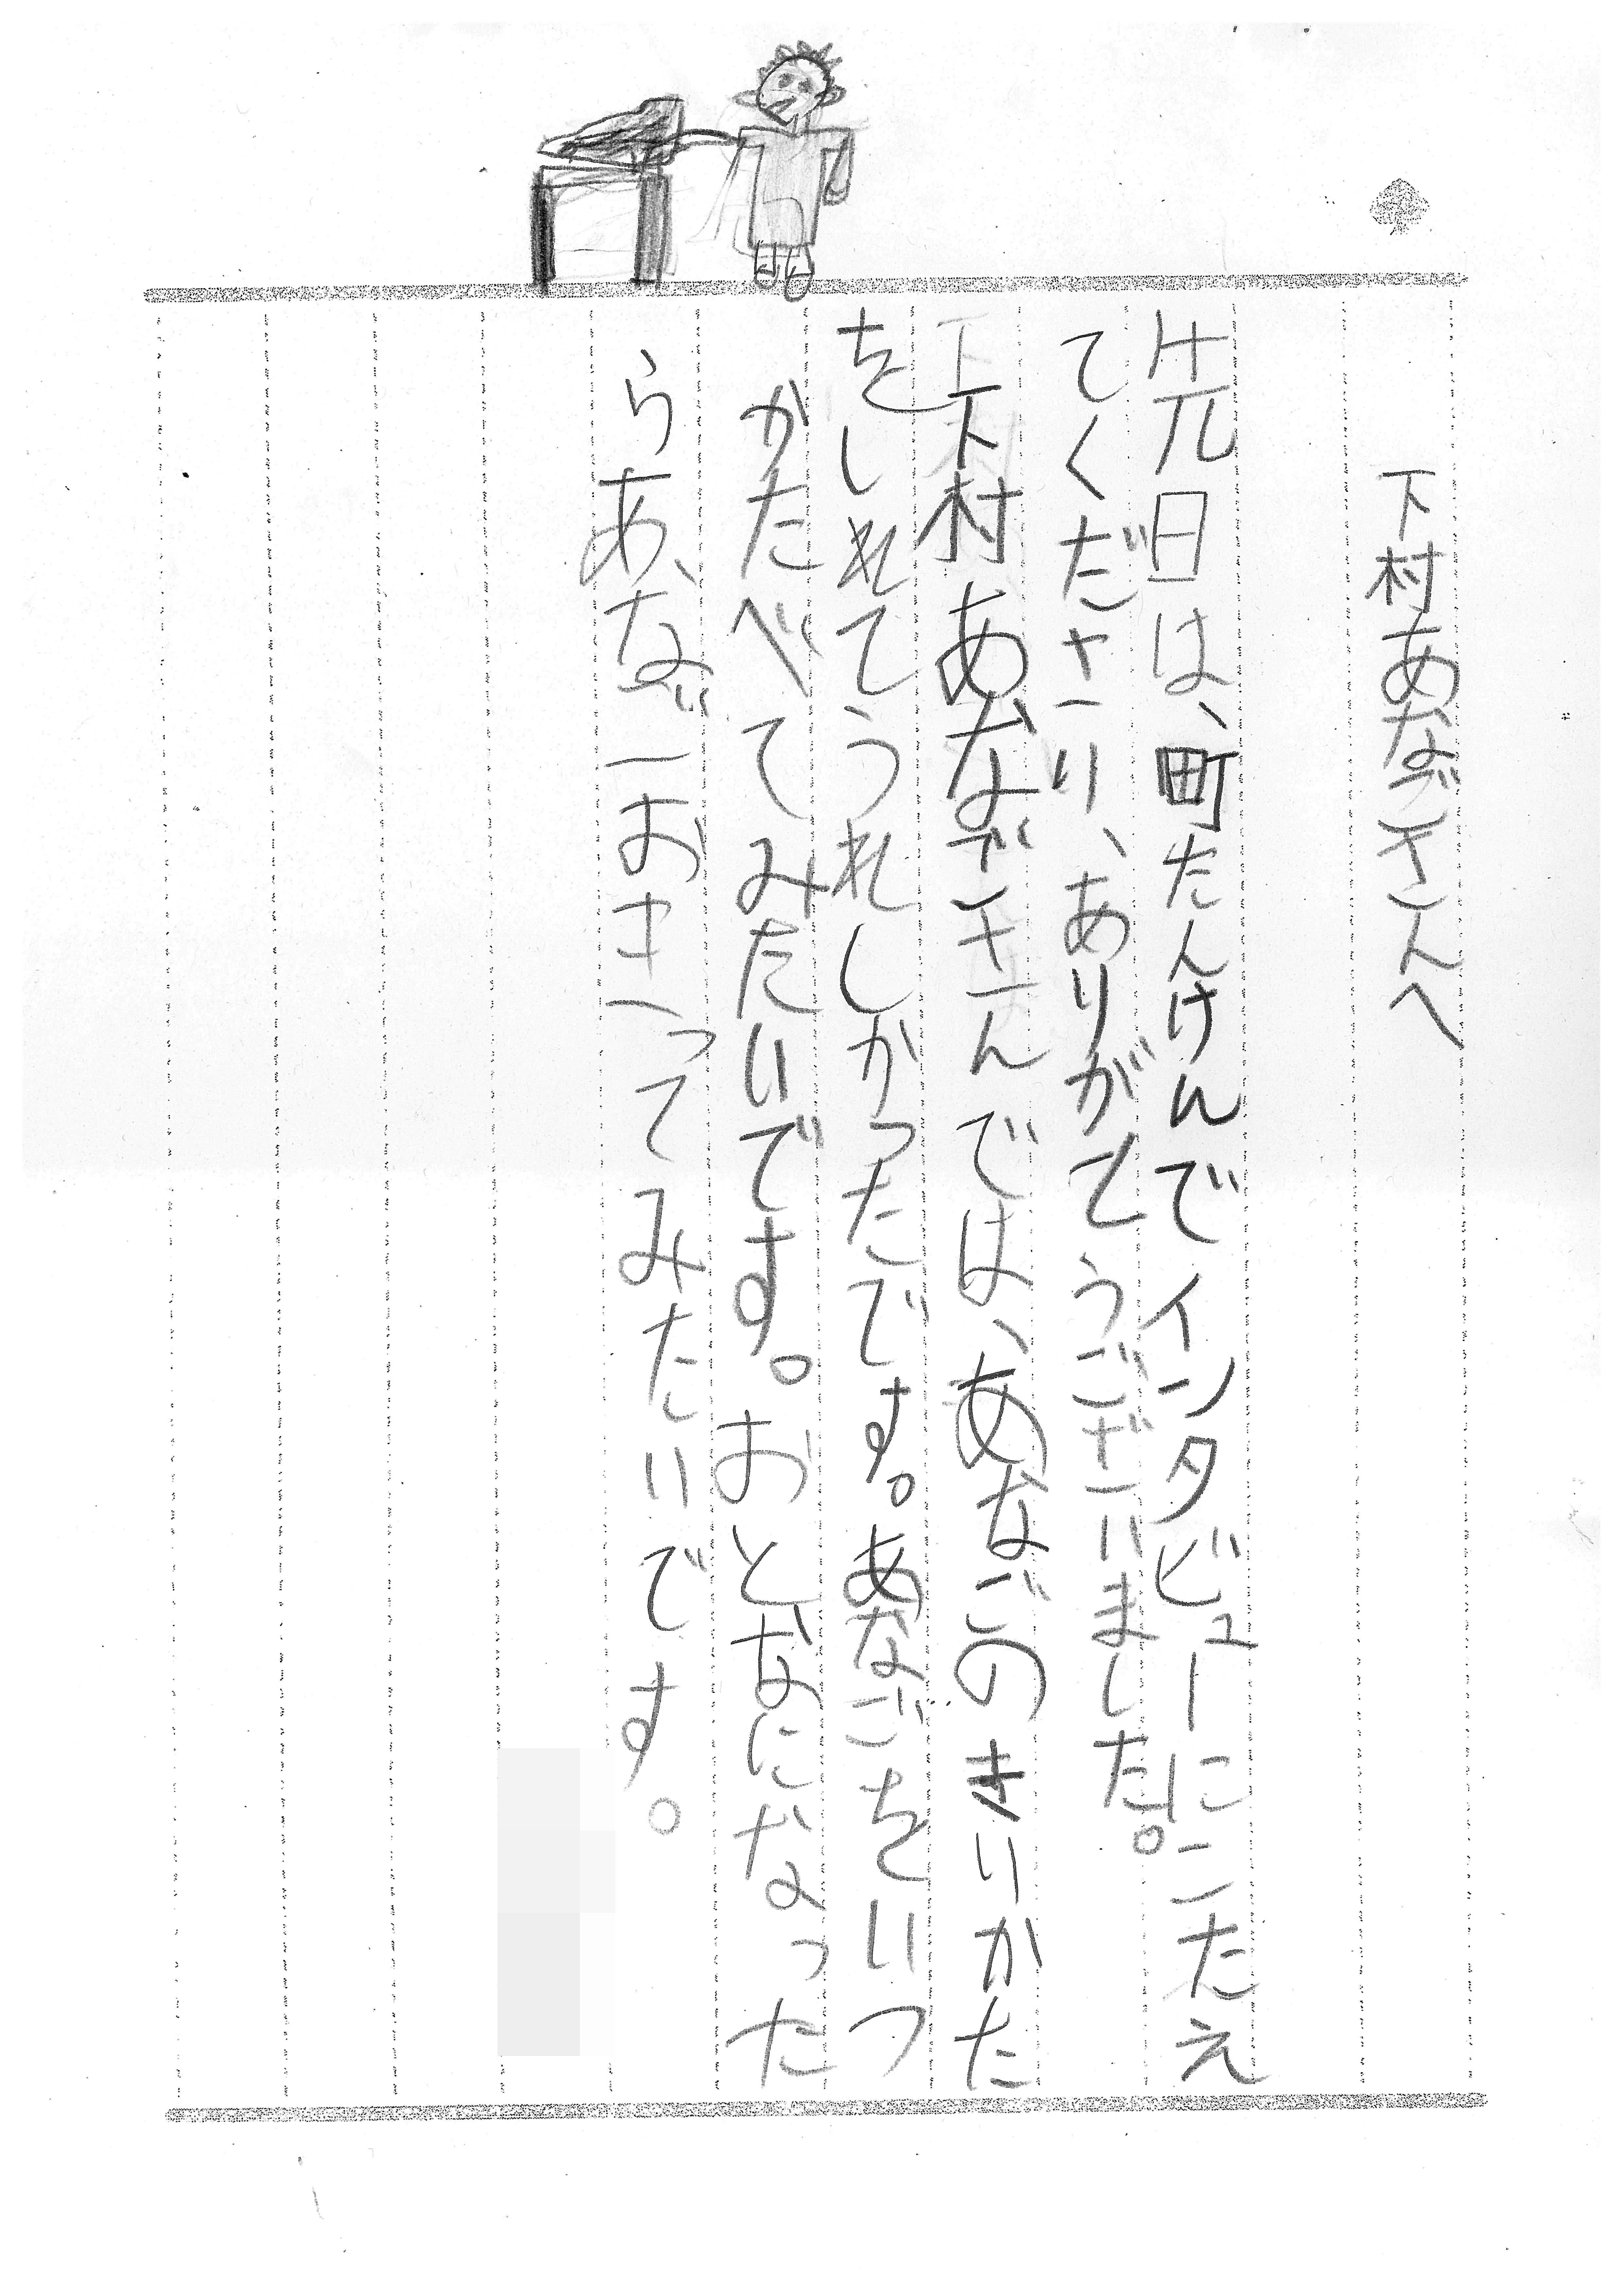 下村あなごさんへ
先日は、町たんけんでインタビューにこたえ
てくださり、ありがとうございました。
下村あなごさんでは、あなごのきりかた
をしれてうれしかったです。あなごをいつ
かたべてみたいです。おとなになった
らあなごおさわってみたいです。